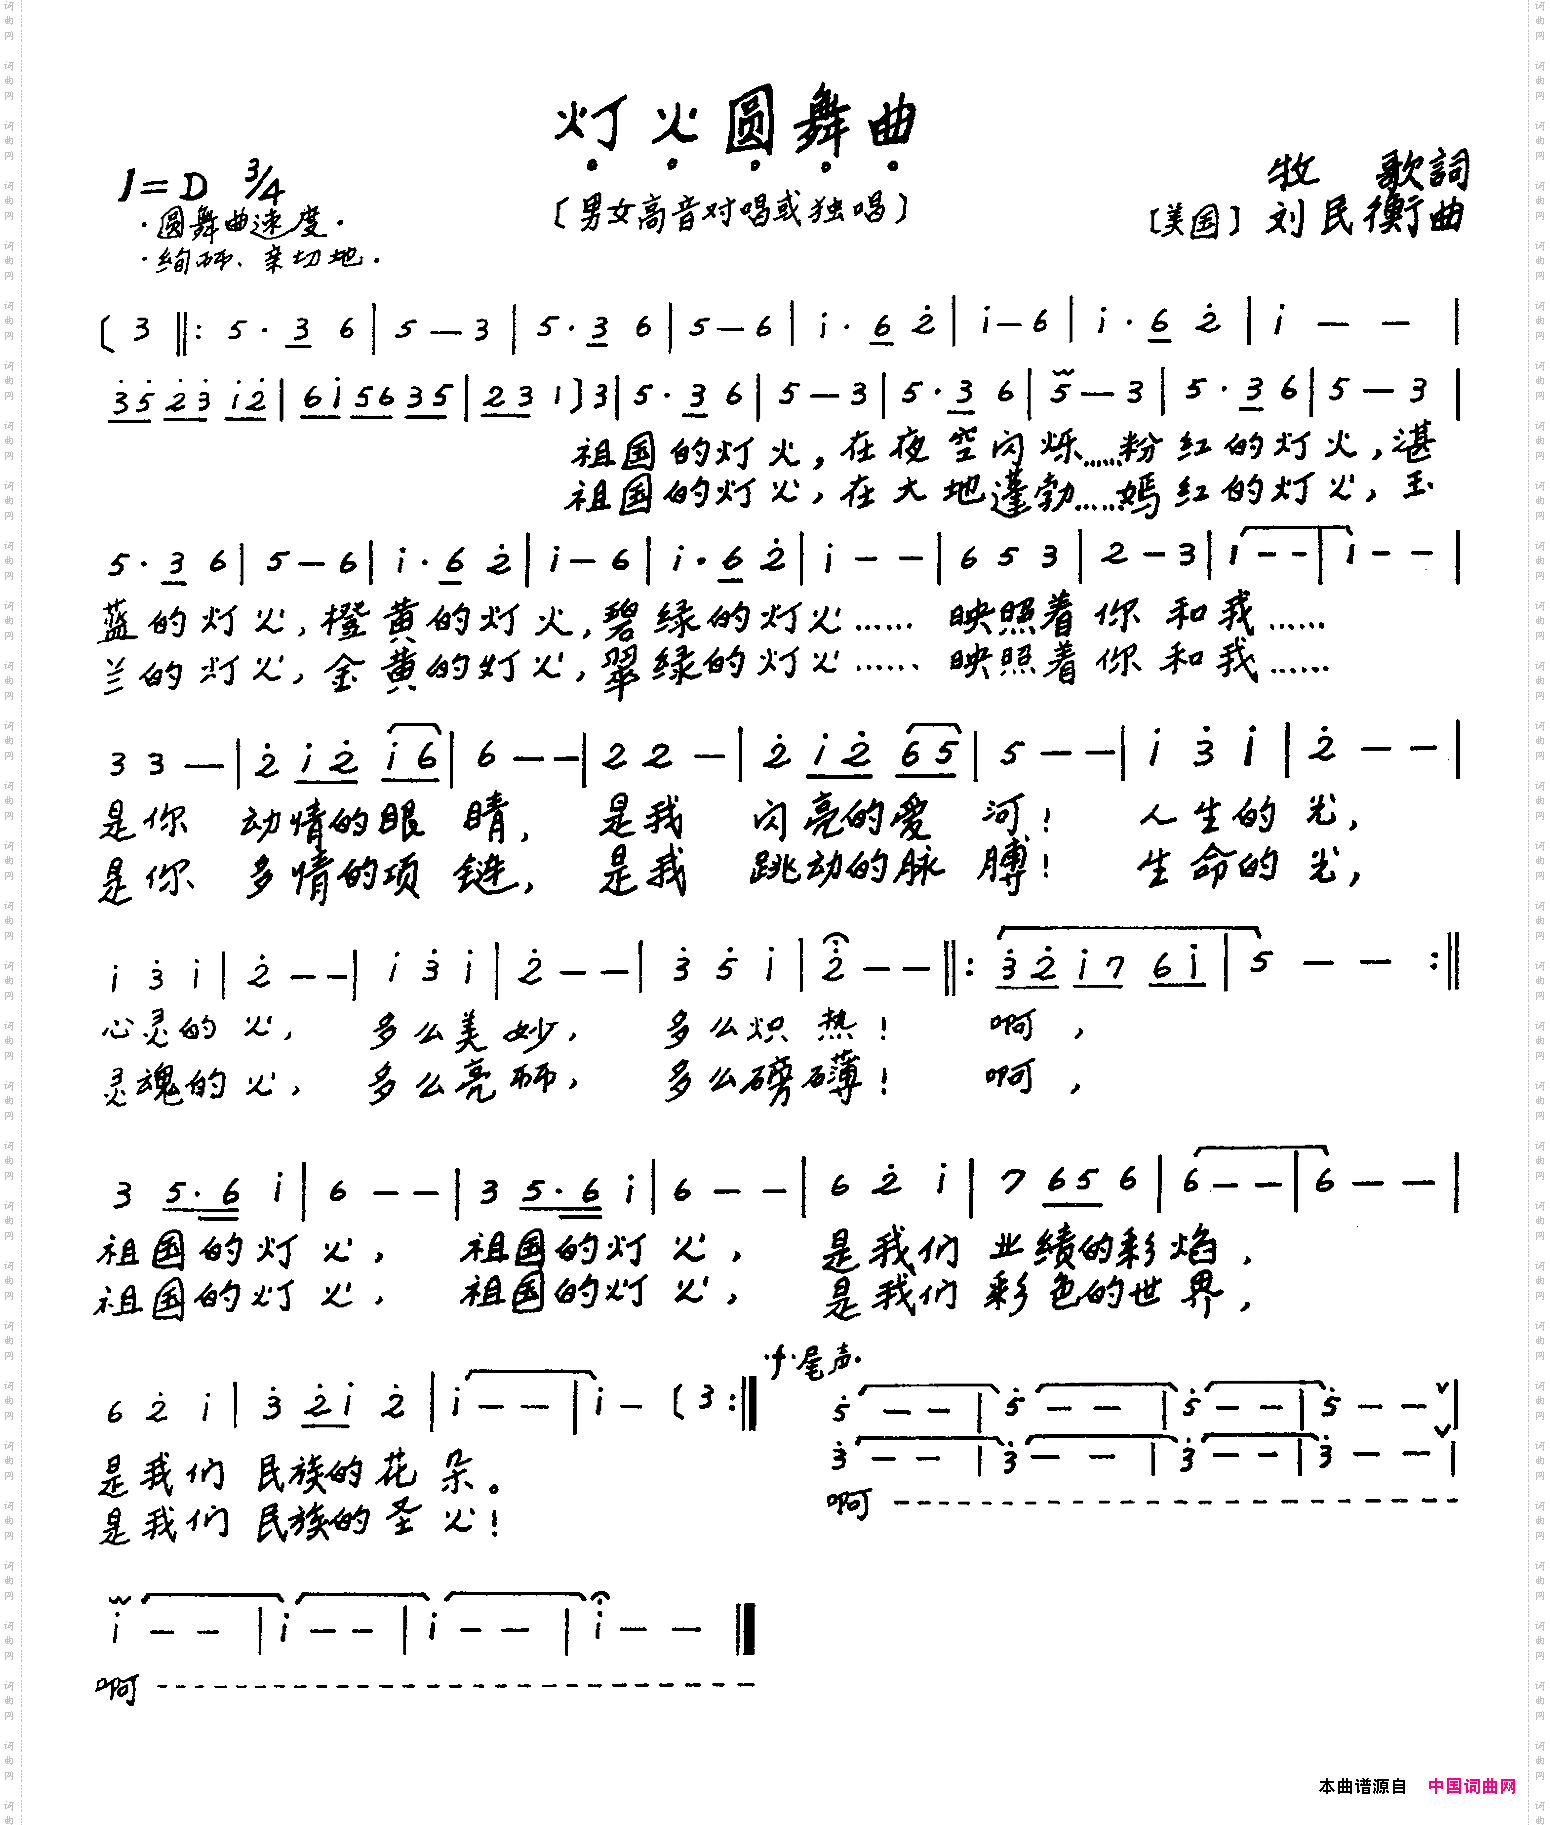 灯火圆舞曲
1=D 3/4
牧 歌詞
(男女高音对唱或独唱)
[美国] 刘民衡曲
·圆舞曲速度·
·绚丽、亲切地·
( 3 ‖: 5 · 3 6 | 5 — 3 | 5 · 3 6 | 5 — 6 | i · 6 2̇ | i — 6 | i · 6 2̇ | i — — |
3̇5̇ 2̇3̇ i2̇ | 6i 56 35 | 23 1 ) 3 | 5 · 3 6 | 5 — 3 | 5 · 3 6 | 5 — 3 | 5 · 3 6 | 5 — 3 |
祖国的灯火,在夜空闪烁……粉红的灯火,湛
祖国的灯火,在大地蓬勃……嫣红的灯火,玉
5 · 3 6 | 5 — 6 | i · 6 2̇ | i — 6 | i · 6 2̇ | i — — | 6 5 3 | 2 — 3 | 1 — — | 1 — — |
蓝的灯火,橙黄的灯火,碧绿的灯火…… 映照着你 和我……
兰的灯火,金黄的灯火,翠绿的灯火…… 映照着你 和我……
3 3 — | 2̇ i2̇ i6 | 6 — — | 2 2 — | 2̇ i2̇ 65 | 5 — — | i 3̇ i | 2̇ — — |
是你 动情的眼 睛, 是我 闪亮的爱 河! 人生的 光,
是你 多情的项 链, 是我 跳动的脉 膊! 生命的 光,
i 3̇ i | 2̇ — — | i 3̇ i | 2̇ — — | 3̇ 5̇ i | 2̇ — — ‖: 3̇2̇ i7 6i | 5 — — :‖
心灵的 火, 多么美妙, 多么炽 热! 啊,
灵魂的 火, 多么亮丽, 多么磅礴! 啊,
3 5·6 i | 6 — — | 3 5·6 i | 6 — — | 6 2̇ i | 7 65 6 | 6 — — | 6 — — |
祖国的灯 火, 祖国的灯 火, 是我们 业绩的彩焰,
祖国的灯 火, 祖国的灯 火, 是我们 彩色的世界,
·f·尾声·
6 2̇ i | 3̇ 2̇i 2̇ | i — — | i — ( 3 :‖ 5̇ — — | 5̇ — — | 5̇ — — | 5̇ — — ∨ |
3̇ — — | 3̇ — — | 3̇ — — | 3̇ — — ∨ |
是我们 民族的花 朵。
啊
是我们 民族的圣 火!
i — — | i — — | i — — | i — — ‖
啊
本曲谱源自 中国词曲网